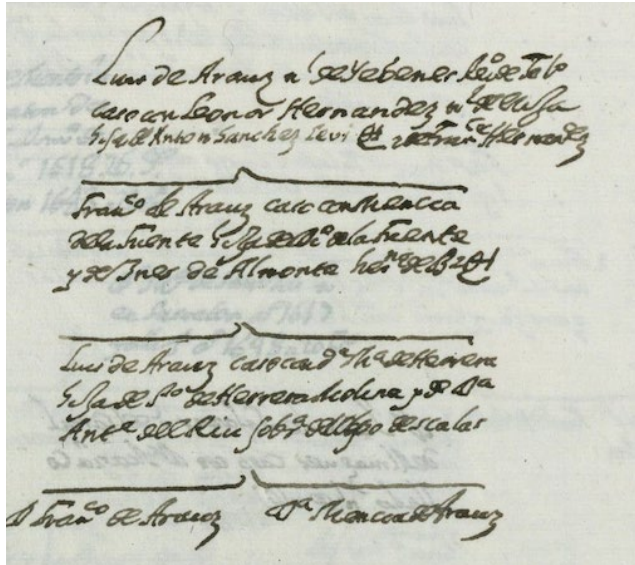 Luis de Arauz n.l de Yebenes Rei.o de Tol.o
caso con Leonor Hernandez n.l de
hija de Anton Sanchez Levi y de Fran.ca Hernandez
Fran.co de Arauz caso con Mencia
de la Fuente hija de di.o de la Fuente
y de Ynes de Almonte her.na de
Luis de Arauz caso con d.a M.a de Herrera
hija de P.o de Herrera Molina y de D.a
Ant.a del Rio sob.a del obpo de scalas
D Fran.co de Arauz D.a Mencia de Arauz